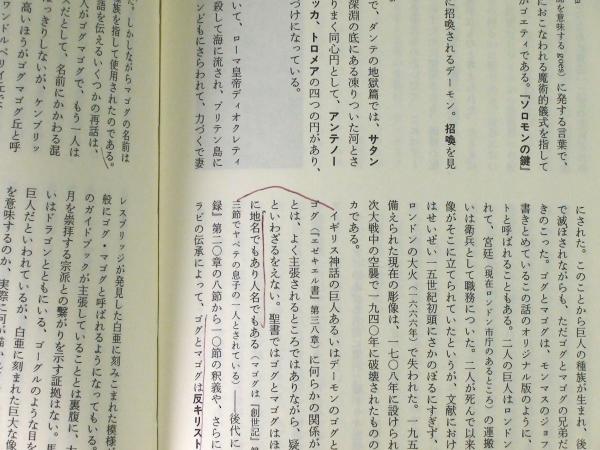 を意味する goes）に発する言葉で、
におこなわれる魔術的儀式を指して
がゴエティアである。『ソロモンの鍵』
に召喚されるデーモン。招喚を見
で、ダンテの地獄篇では、サタン
深淵の底にある凍りついた河とさ
りまく同心円として、アンテノー
ッカ、トロメアの四つの円があり、
づけになっている。
いて、ローマ皇帝ディオクレティ
殺して海に流され、ブリテン島に
ンどもにさらわれて、力づくで妻
にされた。このことから巨人の種族が生まれ、後
で滅ぼされながらも、ただゴグとマゴグの兄弟だ
きのこった。ゴグとマゴグは、モンマスのジョフ
書きとめているこの話のオリジナル版のように、
トと呼ばれることもある。二人の巨人はロンドン
れて、宮廷（現在ロンドン市庁のあるところ）の運搬
いは衛兵として職務についた。二人が死んで以来
像がそこに立てられていたというが、文献におけ
はせいぜい一五世紀初頭にさかのぼるにすぎず、
ロンドンの大火（一六六六年）で失われた。一九五
備えられた現在の彫像は、一七〇八年に設けられ
次大戦中の空襲で一九四〇年に破壊されたものの
カである。
イギリス神話の巨人あるいはデーモンのゴグと
ゴグ（『エゼキエル書』第三八章）に何らかの関係が
とは、よく主張されるところではありながら、疑
といわざるをえない。聖書ではゴグとマゴグはほ
に地名でもあり人名でもある（マゴグは『創世記』第
三節でヤペテの息子の一人とされている）――後代に
録』第二〇章の八節から一〇節の釈義や、さらに
ラビの伝承によって、ゴグとマゴグは反キリスト
た。しかしながらマゴグの名前は
族を指して使用されたのである。
語を伝えるいくつかの再話は、
人がゴグマゴグで、もう一人は
スだとして、名前にかかわる混
っきりしないが、ケンブリッ
高いほうがゴグマゴグ丘と呼
ワンドルベリイ
レスブリッジが発見した白亜に刻みこまれた模様が
般にゴグ・マゴグと呼ばれるようになってもいる。
のガイドブックが主張していることとは裏腹に、大
月を崇拝する宗派との繋がりを示す証拠はない。馬
いはドラゴンとともにいる、ゴーグルのような目を
巨人だといわれているが、白亜に刻まれた巨大な像
を意味するのか、実際に何が